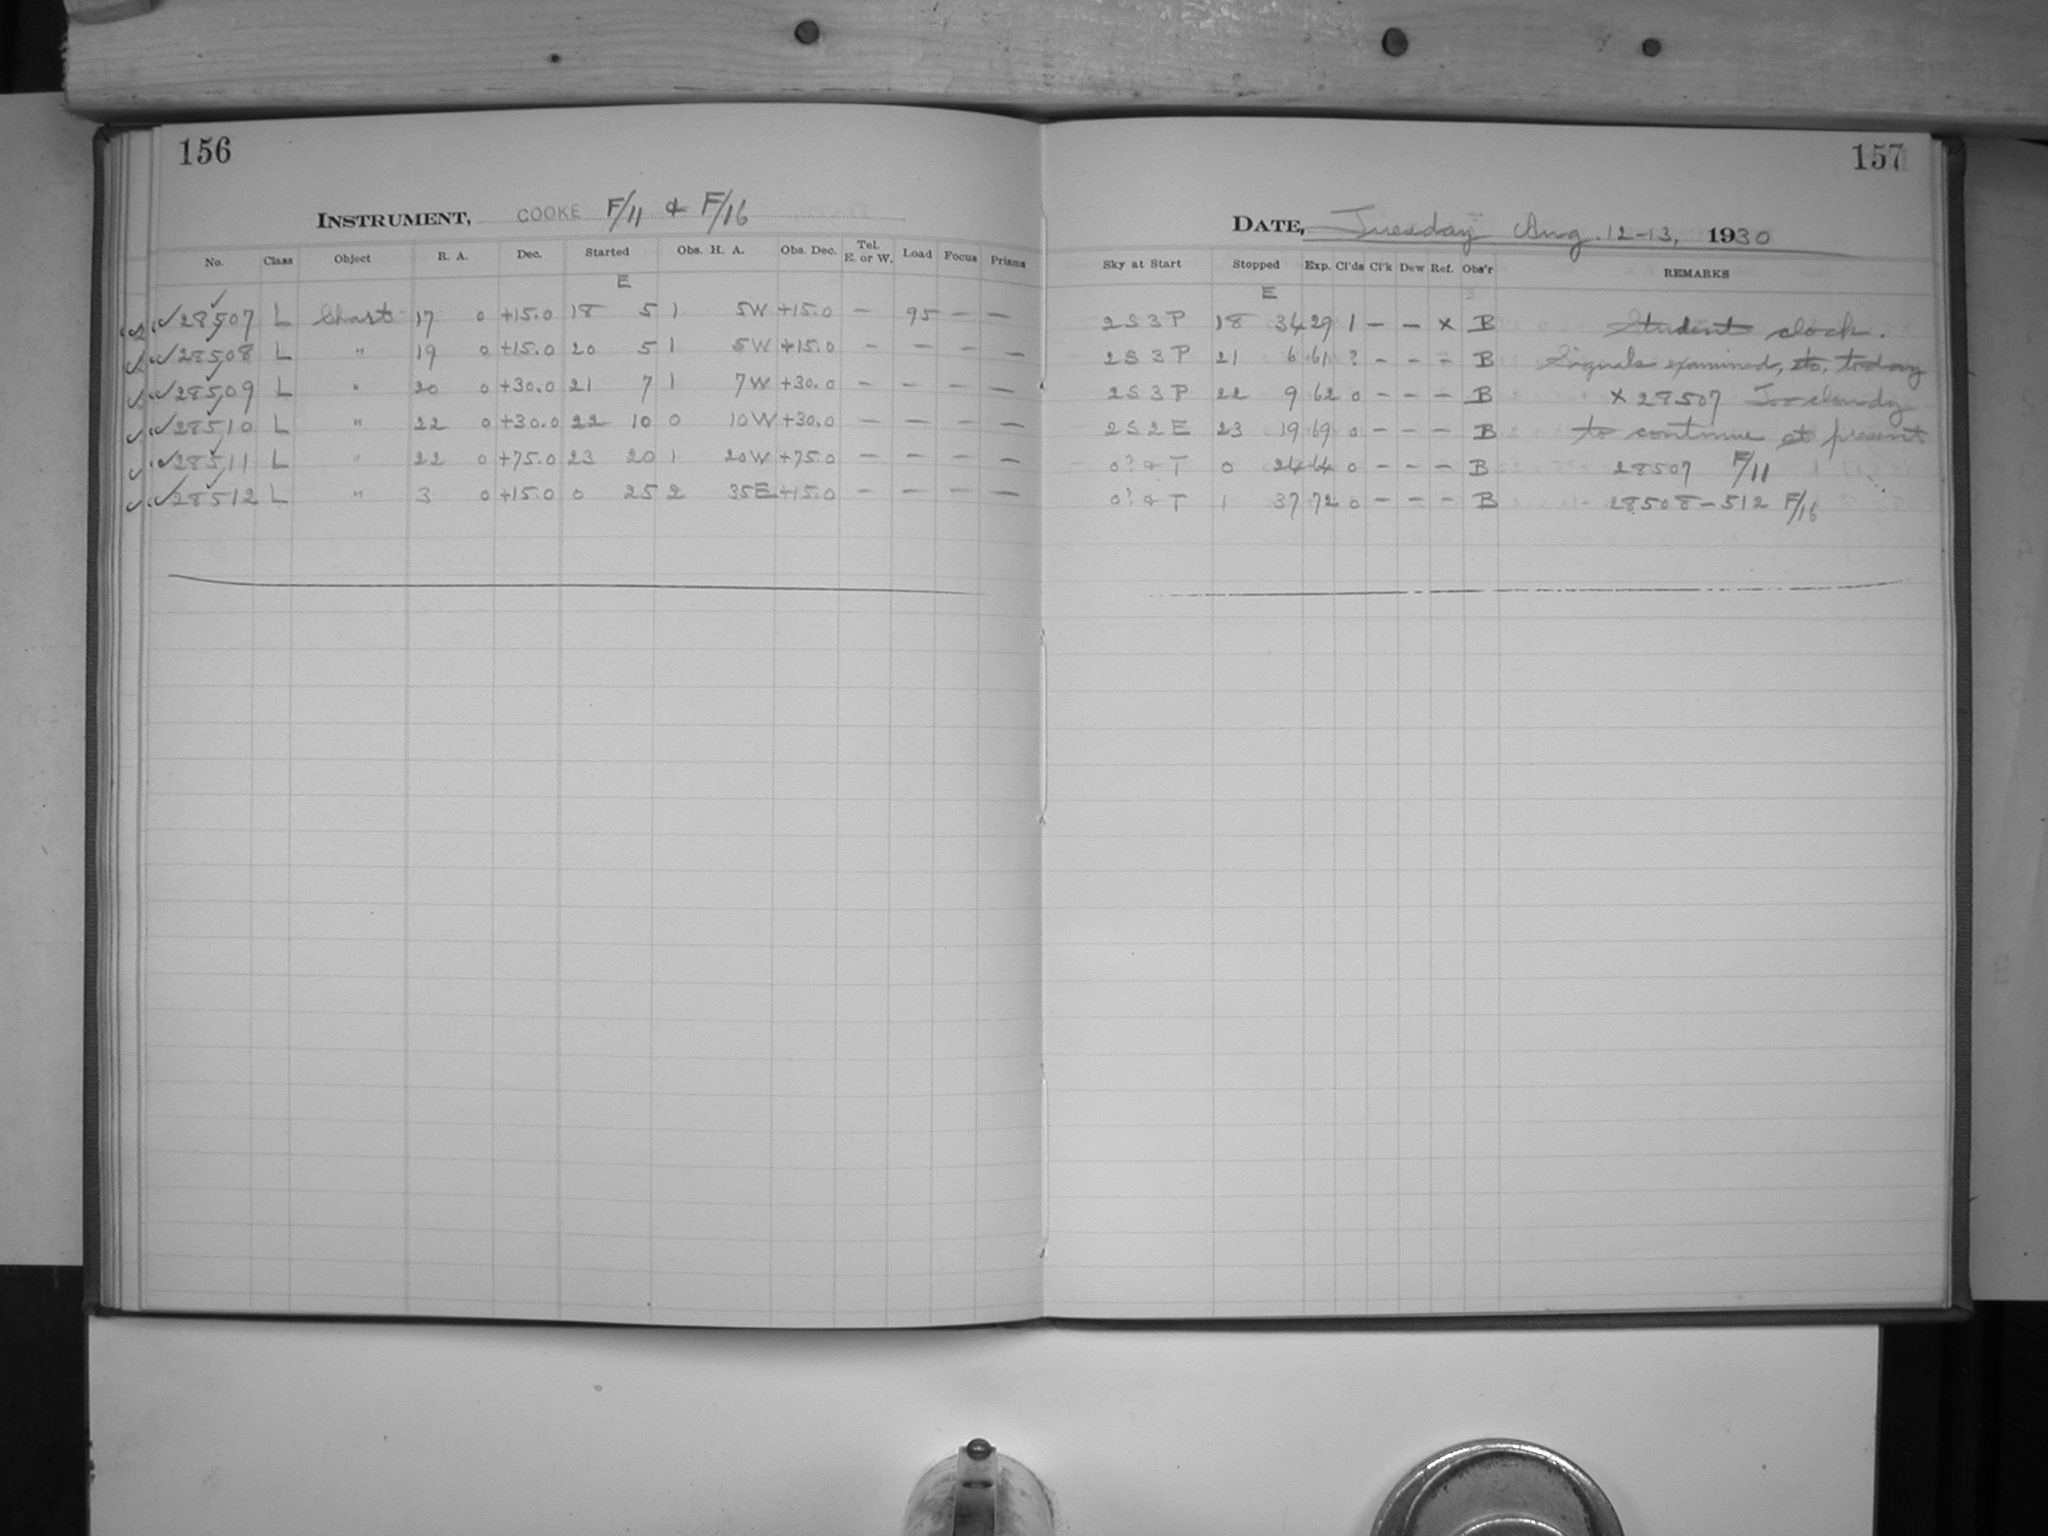 156
INSTRUMENT, COOKE F/11 & F/16
No. Class Object R. A. Dec. Started Obs. H. A. Obs. Dec. Tel. E. or W. Load Focus Prisms
E
28507 L Chart 17 0 +15.0 18 5 1 5W +15.0 — 95 — —
28508 L " 19 0 +15.0 20 5 1 5W +15.0 — — — —
28509 L " 20 0 +30.0 21 7 1 7W +30.0 — — — —
28510 L " 22 0 +30.0 22 10 0 10W +30.0 — — — —
28511 L " 22 0 +75.0 23 20 1 20W +75.0 — — — —
28512 L " 3 0 +15.0 0 25 2 35E +15.0 — — — —
157
DATE, Tuesday Aug. 12-13, 1930
Sky at Start Stopped Exp. Cl'ds Cl'k Dew Ref. Obs'r REMARKS
E
2 S 3 P 18 34 29 1 — — × B Student clock.
2 S 3 P 21 6 61 ? - - - B Signals examined, to. today
2 S 3 P 22 9 62 0 - - - B × 28507 Too cloudy
2 S 2 E 23 19 69 0 - - - B to continue at present
0? & T 0 24 64 0 - - - B 28507 F/11
0? & T 1 37 72 0 - - - B 28508-512 F/16